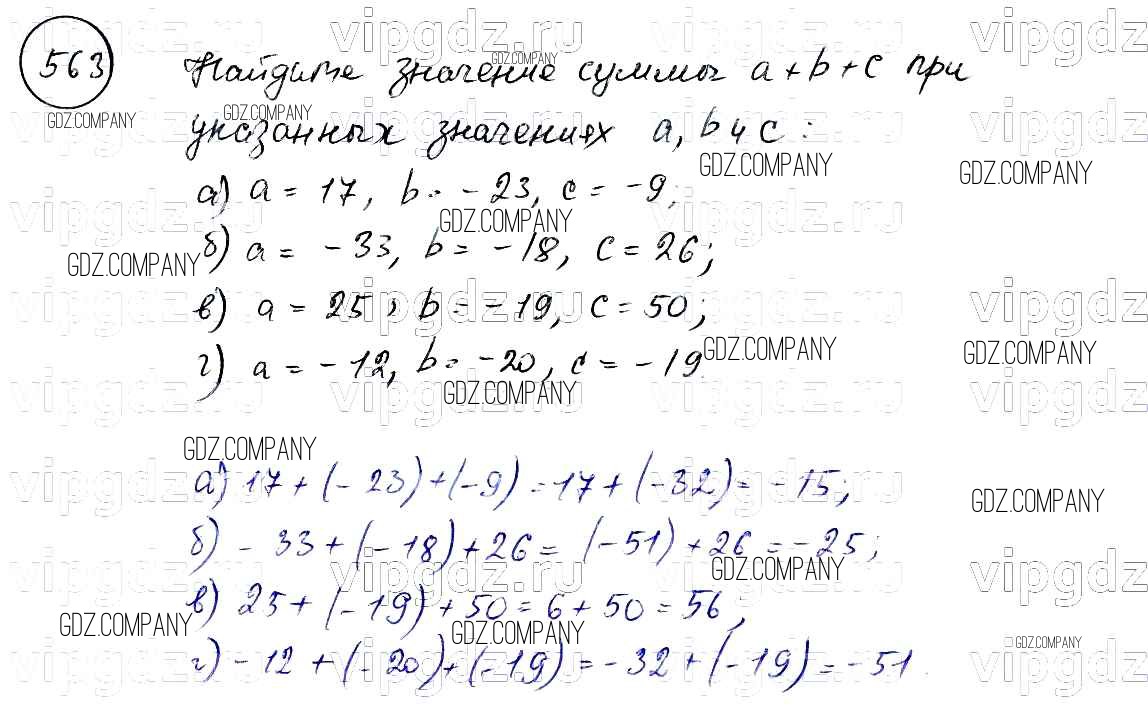 563
Найдите значение суммы a + b + c при
указанных значениях a, b и c:
а) a = 17, b = -23, c = -9;
б) a = -33, b = -18, c = 26;
в) a = 25, b = -19, c = 50;
г) a = -12, b = -20, c = -19
а) 17 + (-23) + (-9) = 17 + (-32) = -15;
б) -33 + (-18) + 26 = (-51) + 26 = -25;
в) 25 + (-19) + 50 = 6 + 50 = 56;
г) -12 + (-20) + (-19) = -32 + (-19) = -51.
GDZ.COMPANY
vipgdz.ru